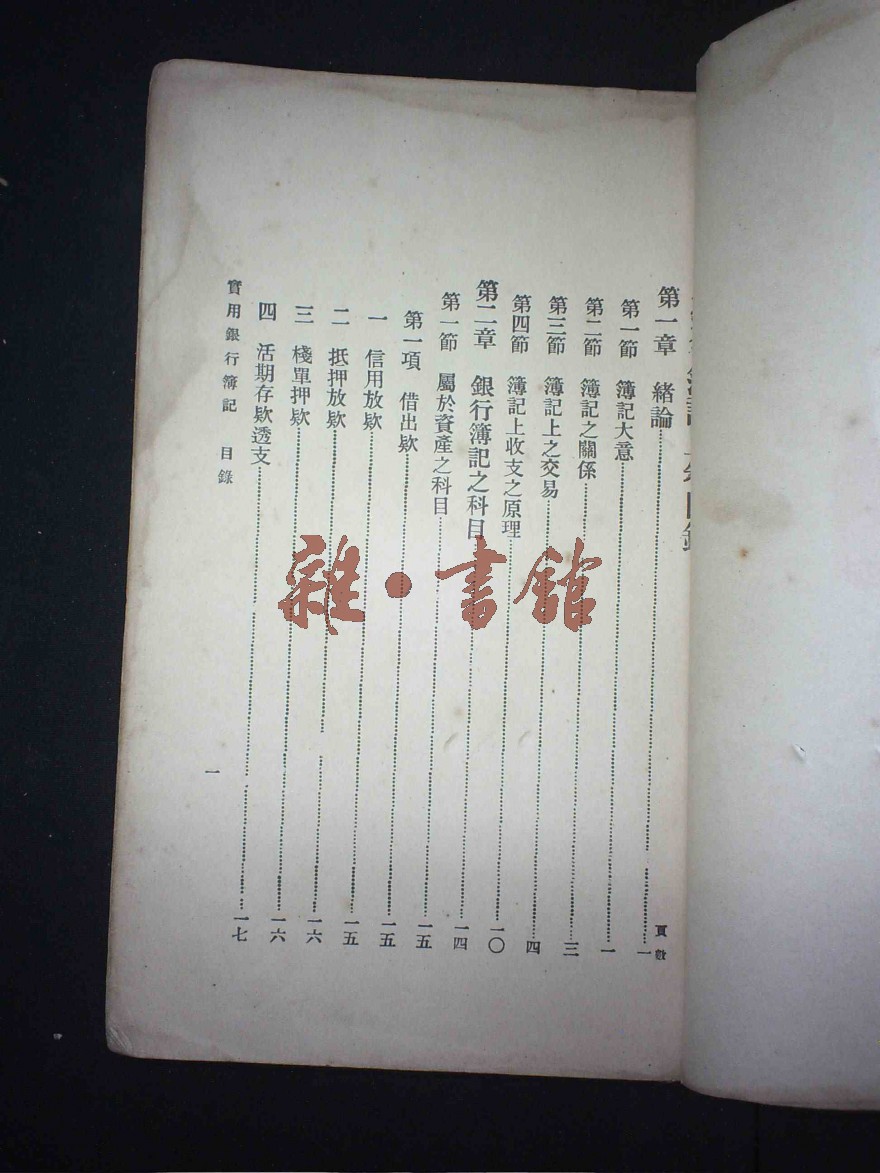 頁數
第一章 緒論……一
第一節 簿記大意……一
第二節 簿記之關係……三
第三節 簿記上之交易……四
第四節 簿記上收支之原理……一〇
第二章 銀行簿記之科目……一四
第一節 屬於資產之科目……一五
第一項 借出欵……一五
一 信用放欵……一五
二 抵押放欵……一六
三 棧單押欵……一六
四 活期存欵透支……一七
實用銀行簿記 目錄
一
雜·書館